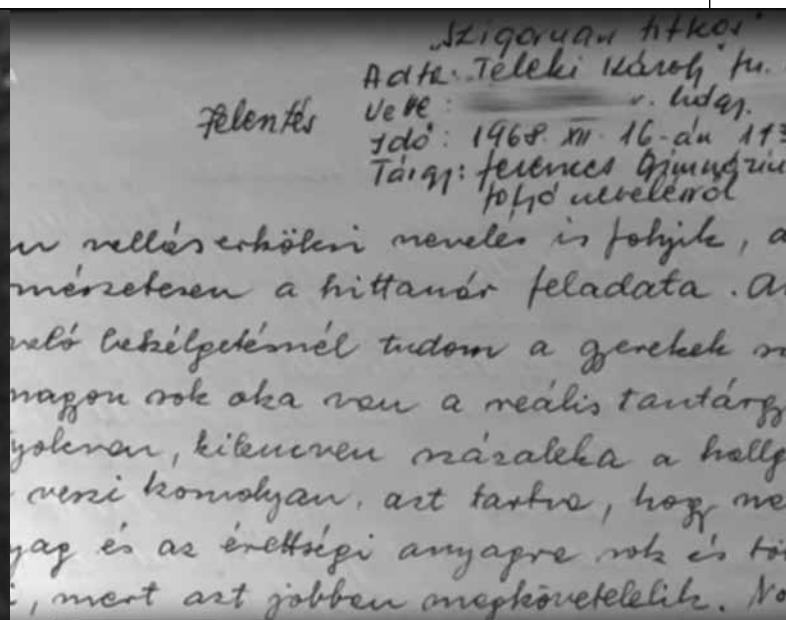 "Szigoruan titkos"
Adta: "Teleki Károly" fn.
Jelentés
Vette : v. hdgy.
Idő : 1968. XII. 16-án 113
Tárgy: Ferences Gimnázium
folyó nevelésről
n vallás erkölcsi nevelés is folyik, a
mészetesen a hittanár feladata. A
való beszélgetésnél tudom a gyerekek
nagyon sok oka van a reális tantárgy
yolcvan, kilencven százaléka a hallg
veszi komolyan, azt tartva, hogy ne
yag és az érettségi anyagra sok és tö
i, mert azt jobban megkövetelelik. No